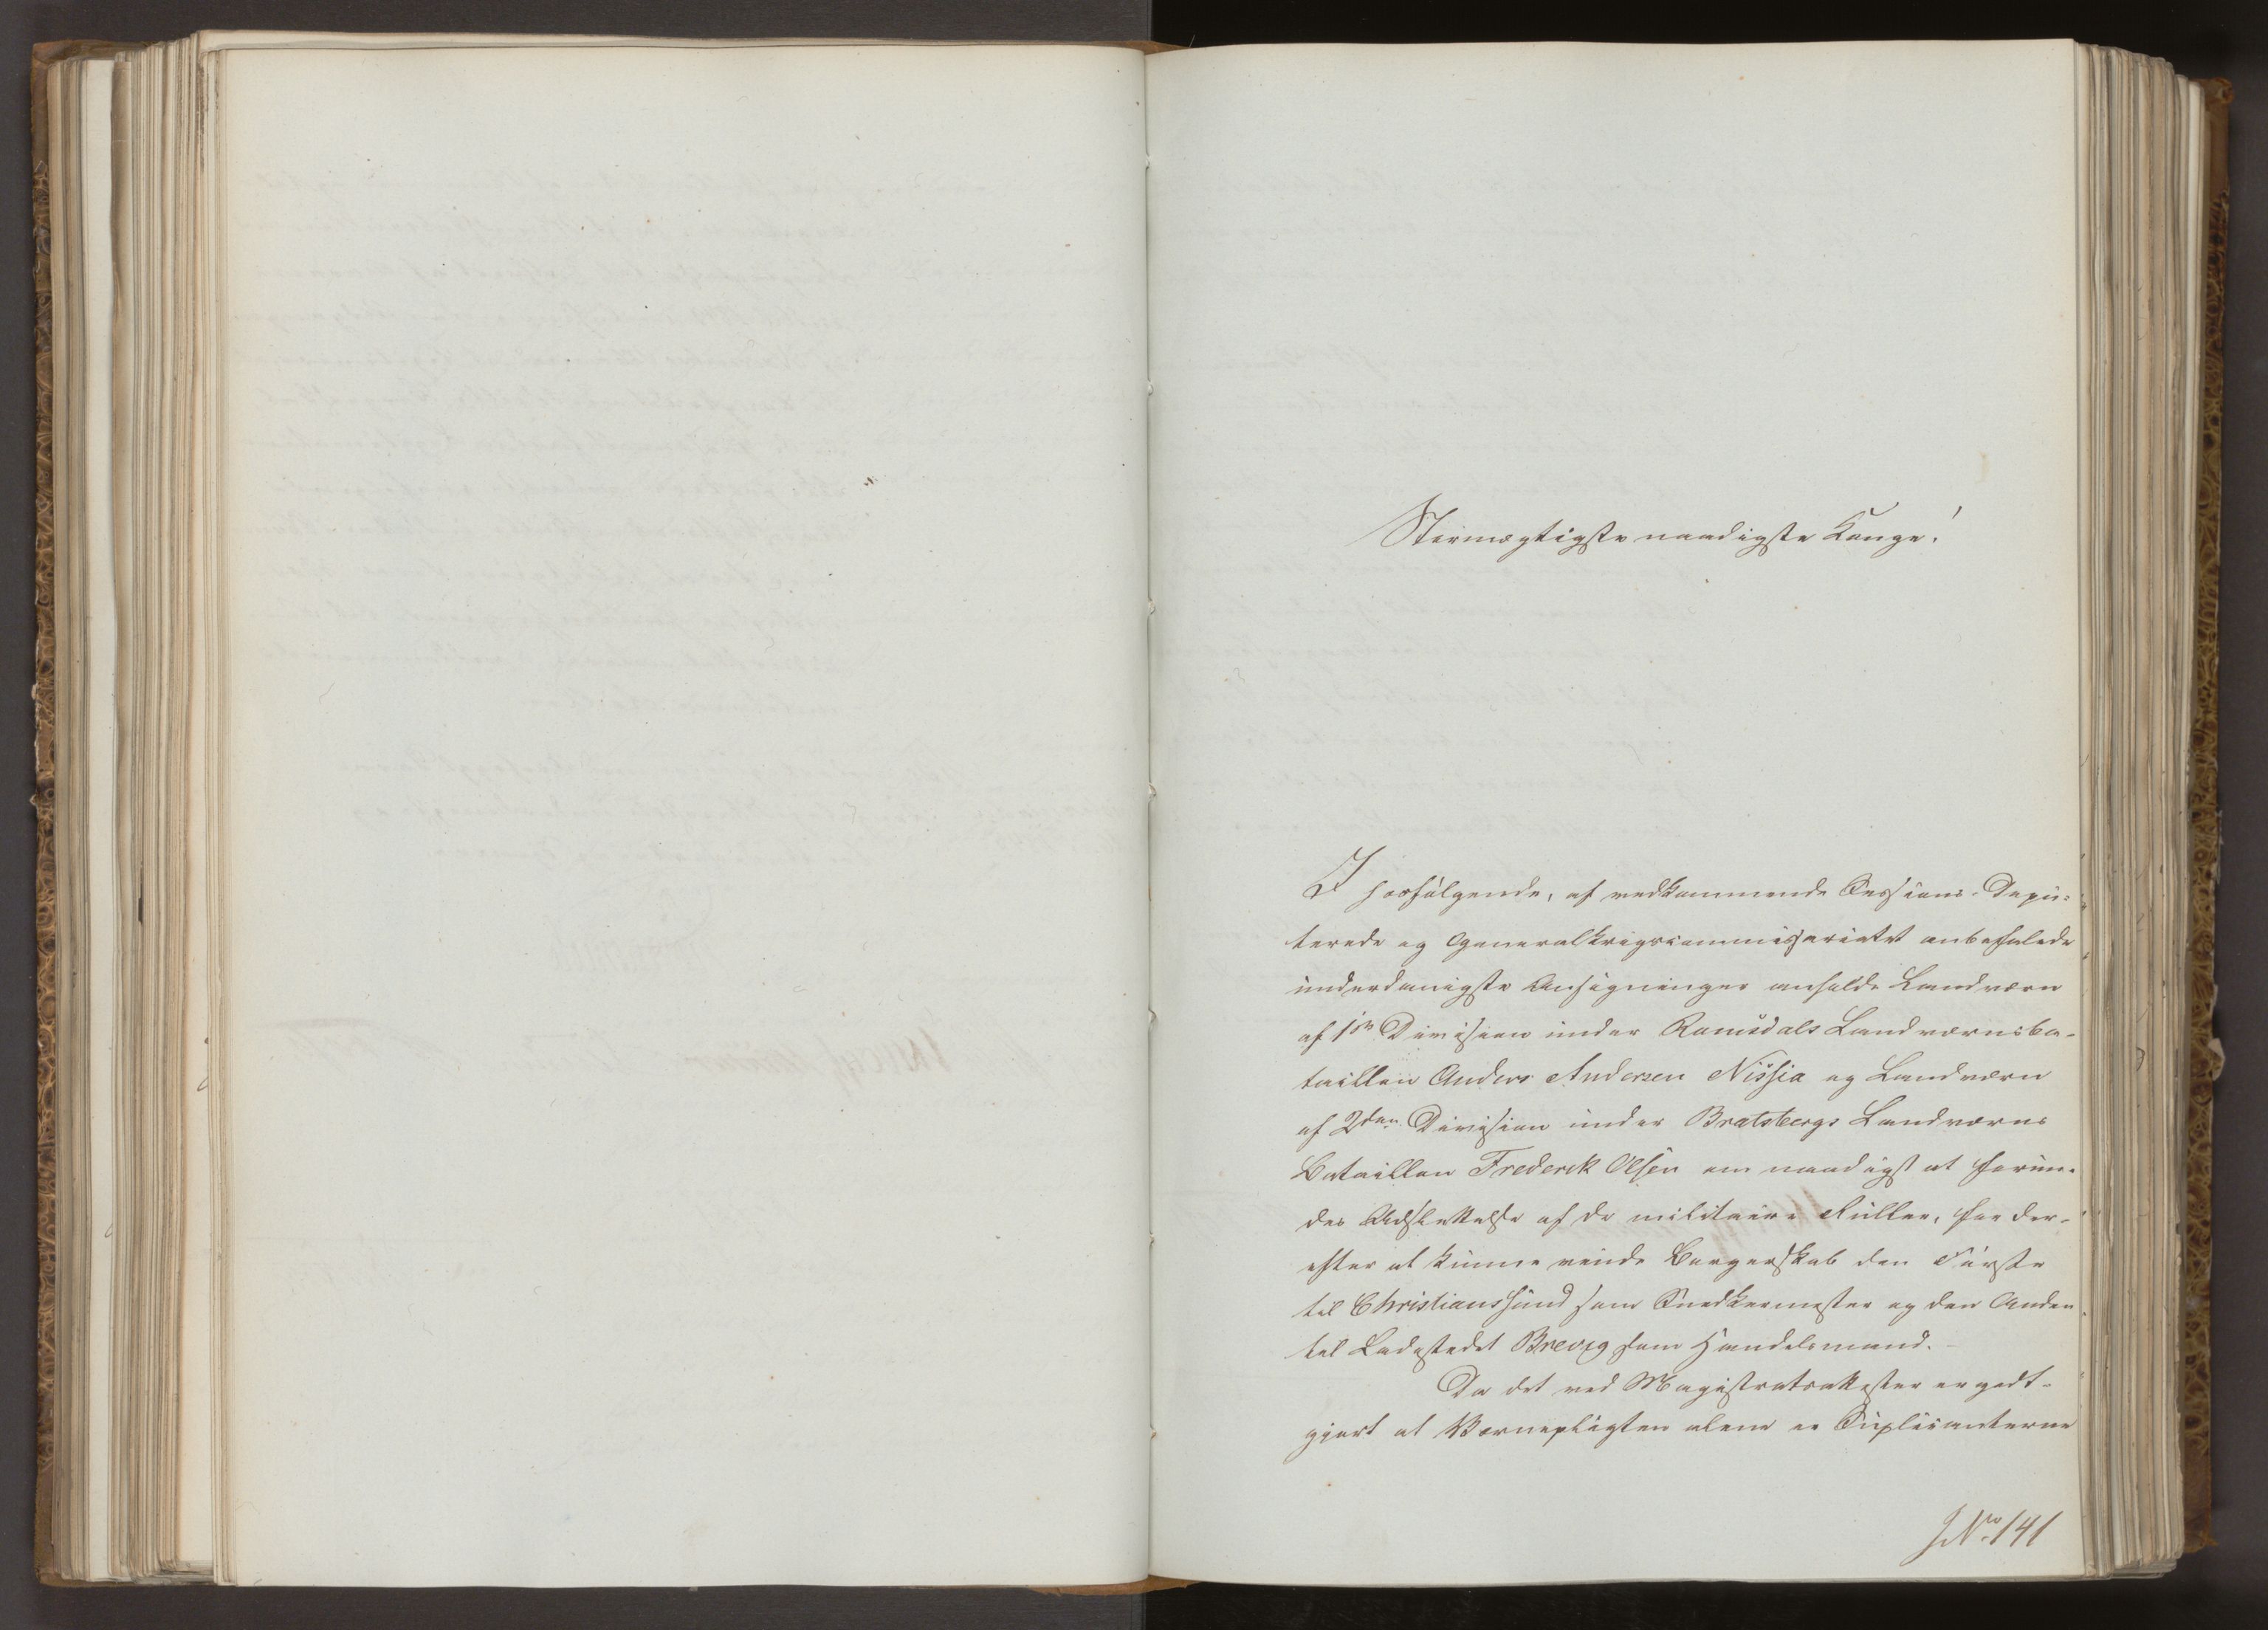 Stormægtigste naadigste Konge!
I hosfølgende, af vedkommende Sessions-Depu-
terede og Generalkrigscommissariatet anbefalede
underdanigste Ansøgninger anholde Landværn
af 1ste Division under Romsdals Landværnsba-
taillon Anders Andersen Nissja og Landværn
af 2den Division under Bratsbergs Landværns
Bataillon Frederik Olsen om naadigst at forun-
des Udslettelse af de militaire Ruller, for der-
efter at kunne vinde Borgerskab den Første
til Christianssund som Snedkermester og den Anden
til Ladestedet Brevig som Handelsmand.
Da det ved Magistratsattester er godt-
gjort at Værnepligten alene er Suplicanterne
JNo 141